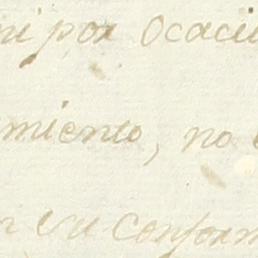 ni por Ocaci
miento, no
en su conform